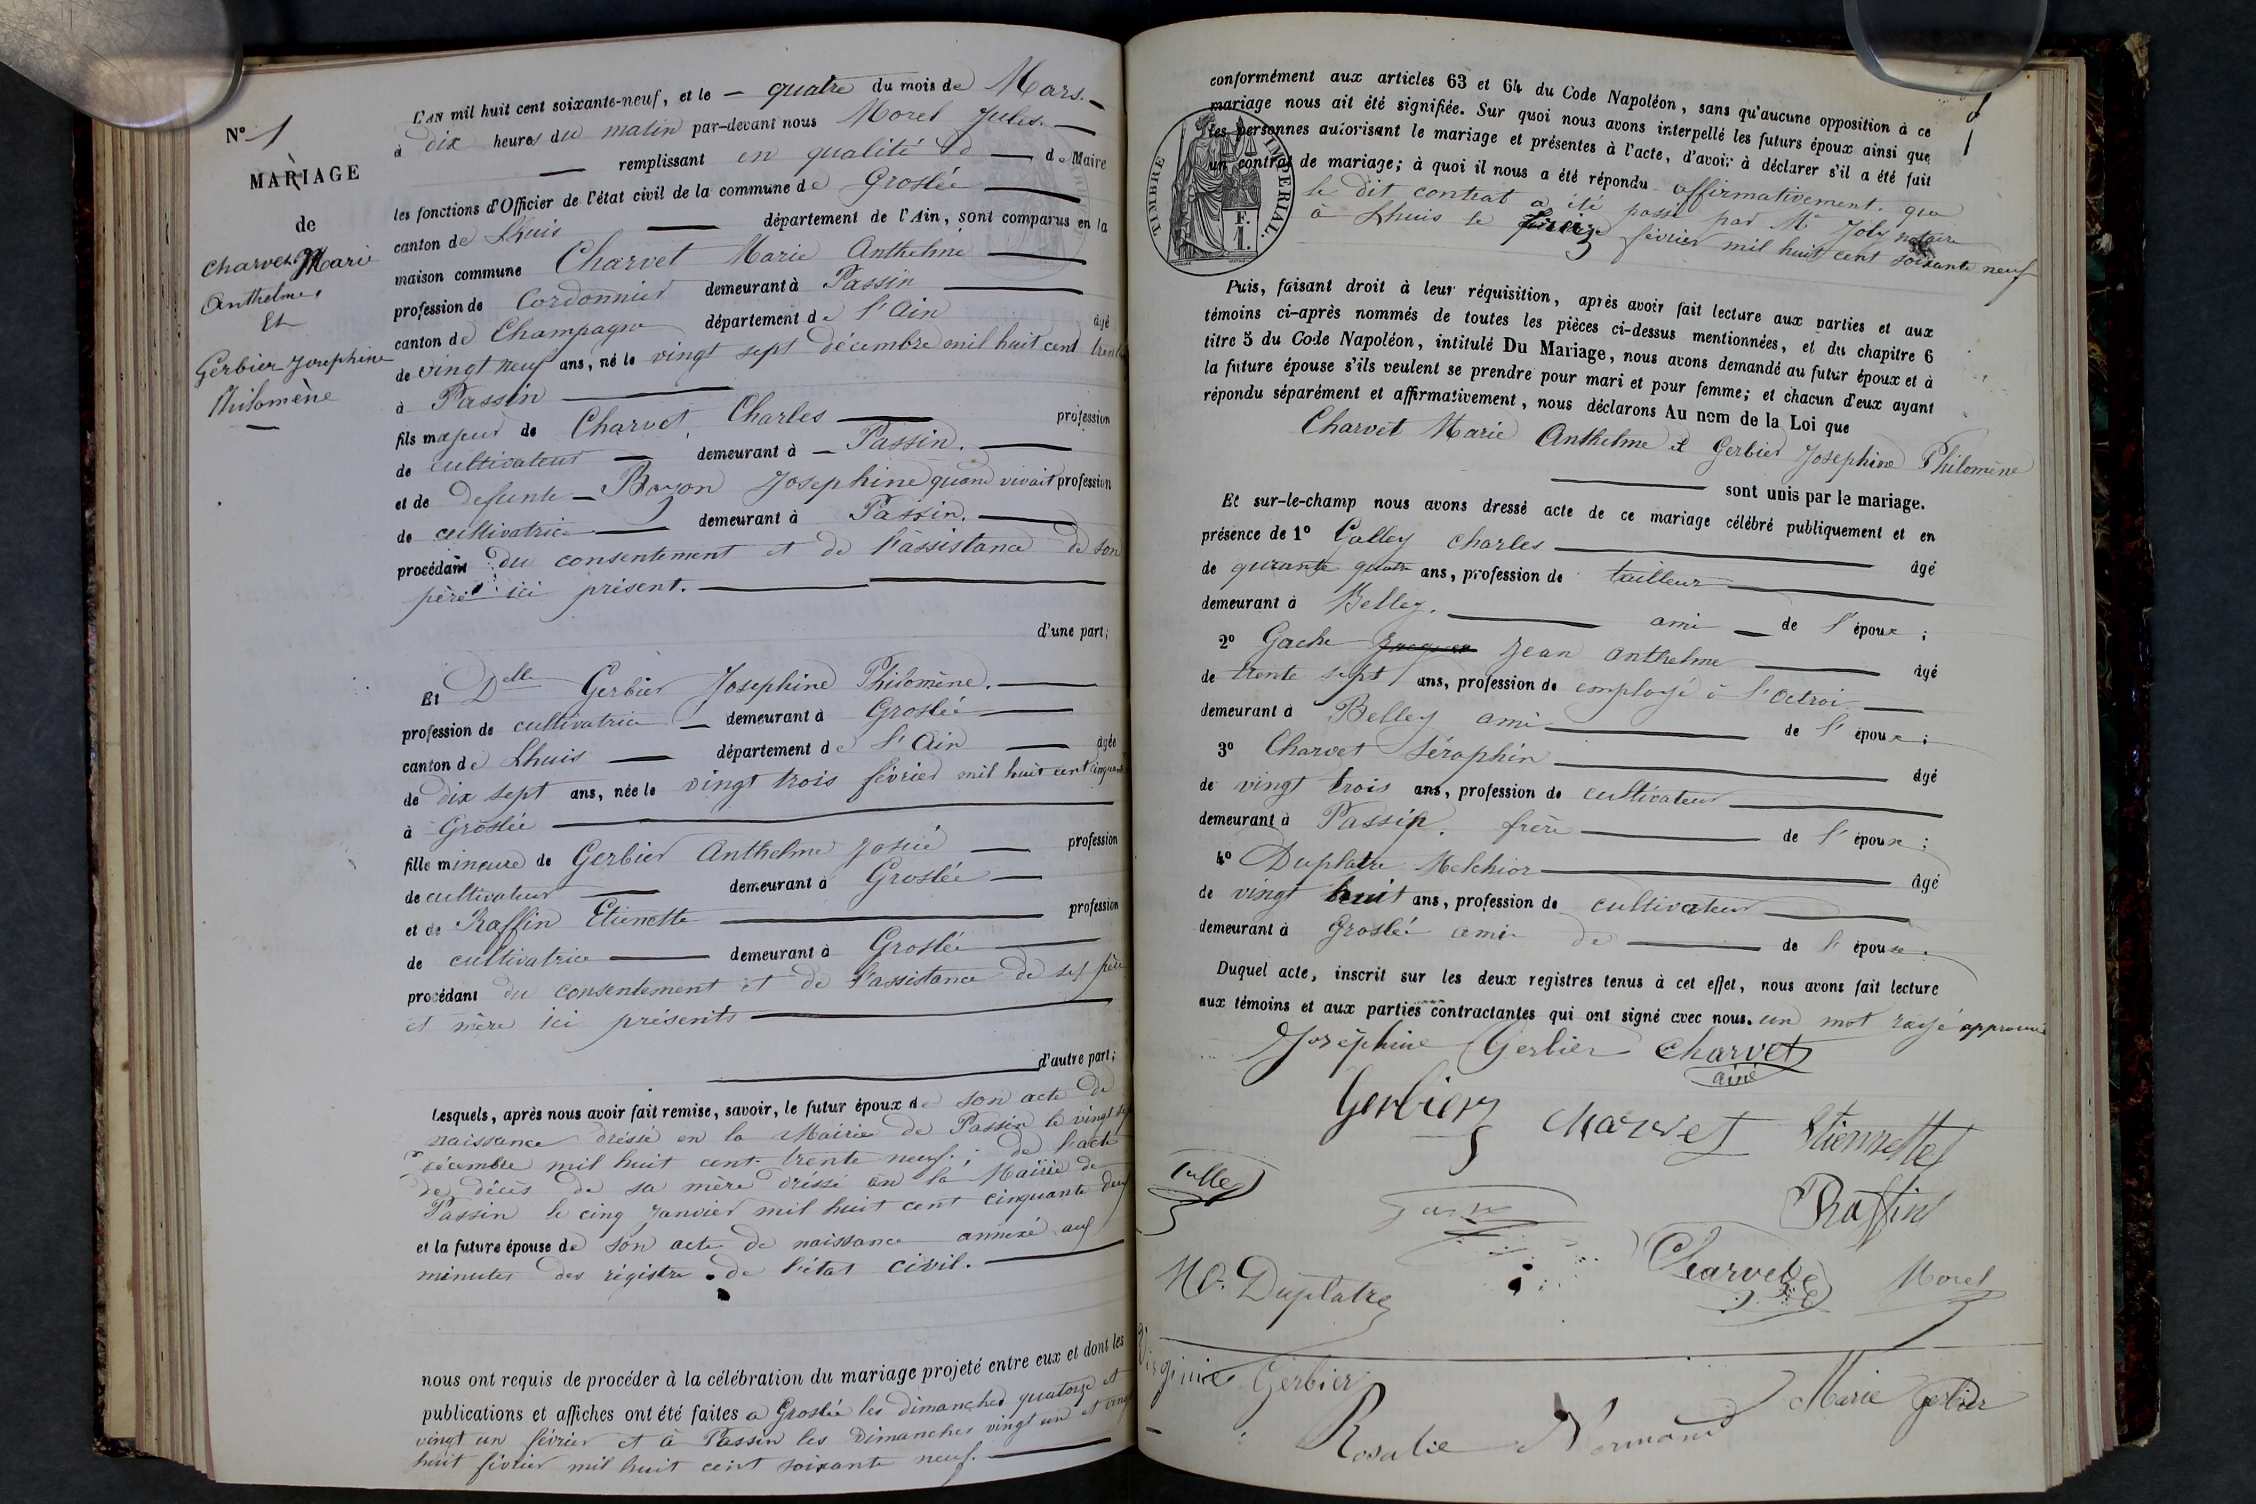 N° 1
MARIAGE
de
Charvet Marie
Anthelme
Et
Gerbier Josephine
Philomène
L'AN mil huit cent soixante-neuf, et le quatre du mois de Mars.
à dix heures du matin par-devant nous Morel Jules
remplissant en qualité de Maire
les fonctions d'Officier de l'état civil de la commune de Groslée
canton de Lhuis département de l'Ain, sont comparus en la
maison commune Charvet Marie Anthelme
profession de Cordonnier demeurant à Passin
canton de Champagne département de l'Ain âgé
de vingt neuf ans, né le vingt sept décembre mil huit cent trente
à Passin
fils majeur de Charvet Charles profession
de cultivateur demeurant à Passin.
et de defunte Bozon Josephine quand vivait profession
de cultivatrice demeurant à Passin.
procédant du consentement et de l'assistance de son
père ici présent.
d'une part;
Et Delle Gerbier Josephine Philomène.
profession de cultivatrice demeurant à Groslée
canton de Lhuis département de l'Ain âgée
de dix sept ans, née le vingt trois février mil huit cent cinquante
à Groslée
fille mineure de Gerbier Anthelme Josué profession
de cultivateur demeurant à Groslée
et de Raffin Etienette profession
de cultivatrice demeurant à Groslée
procédant du consentement et de l'assistance de ses père
et mère ici présents
d'autre part;
Lesquels, après nous avoir fait remise, savoir, le futur époux de son acte de
naissance dréssé en la Mairie de Passin le vingt sept
décembre mil huit cent trente neuf; de l'acte
de décès de sa mère dréssé en la Mairie de
Passin le cinq Janvier mil huit cent cinquante deux
et la future épouse de son acte de naissance annexé aux
minutes des régistre de l'état civil.
nous ont requis de procéder à la célébration du mariage projeté entre eux et dont les
publications et affiches ont été faites a Groslée les dimanches quatorze et
vingt un février et à Passin les dimanches vingt un et vingt
huit février mil huit cent soixante neuf.
conformément aux articles 63 et 64 du Code Napoléon, sans qu'aucune opposition à ce
mariage nous ait été signifiée. Sur quoi nous avons interpellé les futurs époux ainsi que
les personnes autorisant le mariage et présentes à l'acte, d'avoir à déclarer s'il a été fait
un contrat de mariage; à quoi il nous a été répondu affirmativement. que
le dit contrat a été passé par Me Joly notaire
à Lhuis le février mil huit cent soixante neuf
TIMBRE IMPERIAL.
1 F.
Puis, faisant droit à leur réquisition, après avoir fait lecture aux parties et aux
témoins ci-après nommés de toutes les pièces ci-dessus mentionnées, et du chapitre 6
titre 5 du Code Napoléon, intitulé Du Mariage, nous avons demandé au futur époux et à
la future épouse s'ils veulent se prendre pour mari et pour femme; et chacun d'eux ayant
répondu séparément et affirmativement, nous déclarons Au nom de la Loi que
Charvet Marie Anthelme et Gerbier Josephine Philomène
sont unis par le mariage.
Et sur-le-champ nous avons dressé acte de ce mariage célébré publiquement et en
présence de 1° Calley Charles âgé
de qurante quatre ans, profession de tailleur
demeurant à Belley. ami de l'époux;
2° Gache Jean anthelme âgé
de trente sept ans, profession de employé à l'Octroi
demeurant à Belley ami de l'époux;
3° Charvet Séraphin âgé
de vingt trois ans, profession de cultivateur
demeurant à Passin. frère de l'époux;
4° Duplatre Melchior âgé
de vingt huit ans, profession de cultivateur
demeurant à Groslée ami de de l'épouse.
Duquel acte, inscrit sur les deux registres tenus à cet effet, nous avons fait lecture
aux témoins et aux parties contractantes qui ont signé avec nous. un mot rayé approuvé
Joséphine Gerbier Charvet
ainé
Gerbier Charvet Etiennette
Raffin
Charvet Morel
M. Duplatre
Virginie Gerbier Marie Gerbier
Rosalie Normand